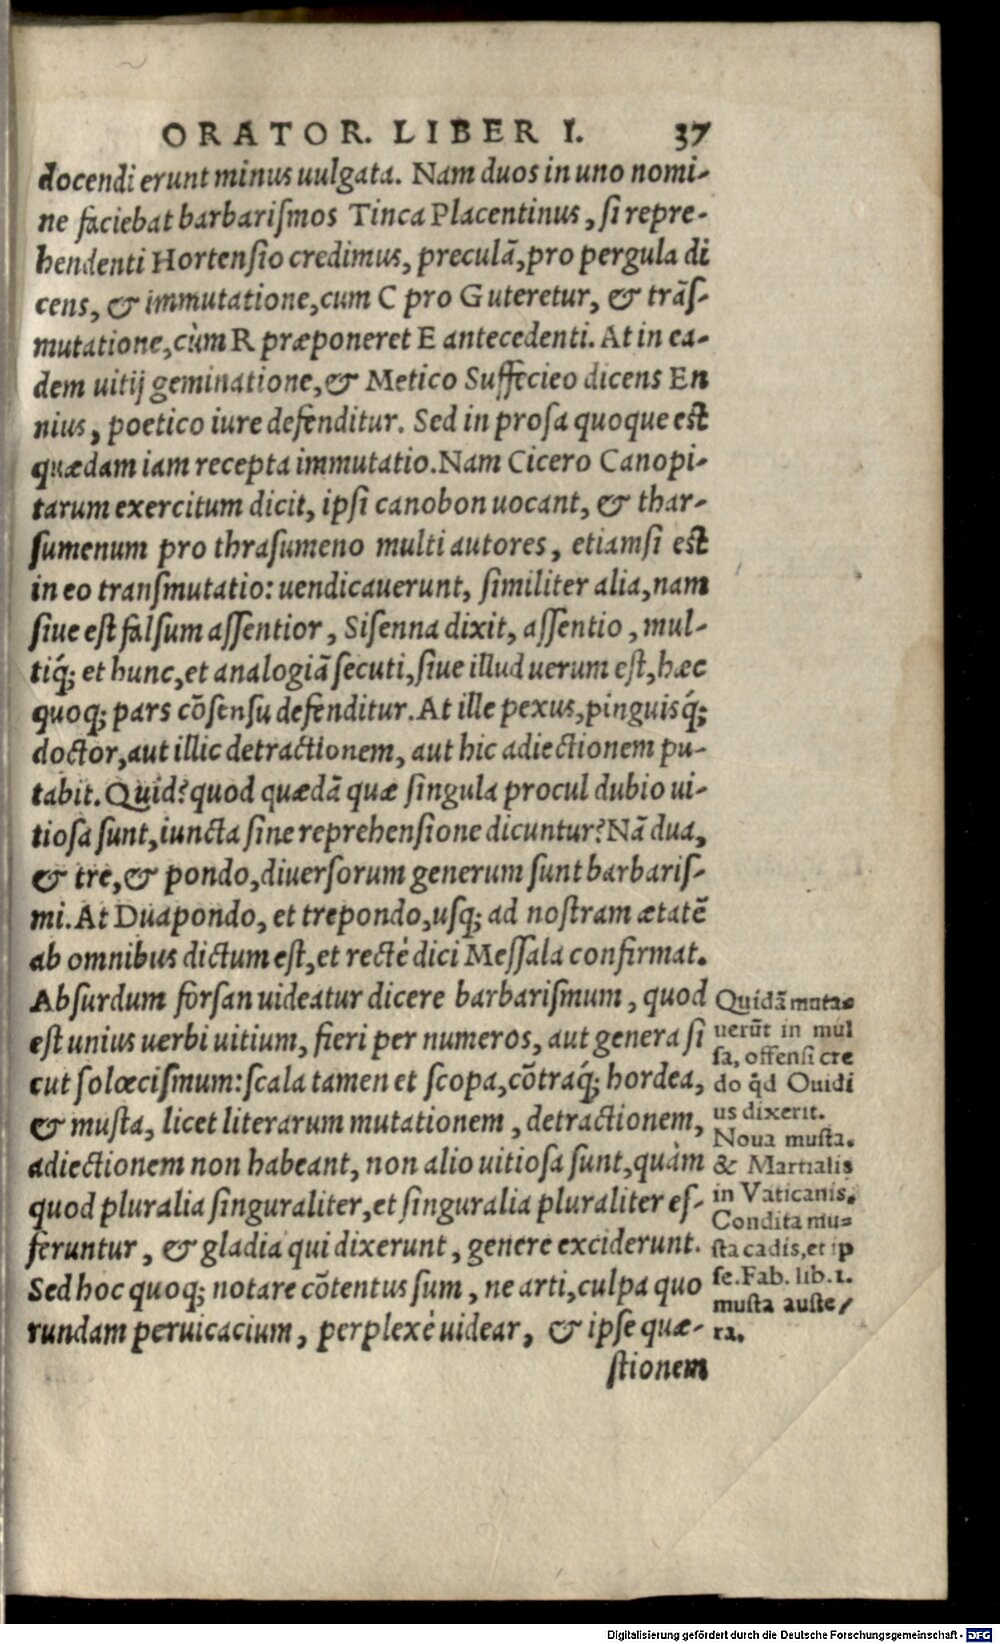 ORATOR. LIBER I. 37
docendi erunt minus uulgata. Nam duos in uno nomi-
ne faciebat barbariſmos Tinca Placentinus, ſi repre-
hendenti Hortenſio credimus, preculã, pro pergula di
cens, & immutatione, cum C pro G uteretur, & trãſ-
mutatione, cùm R præponeret E antecedenti. At in ea-
dem uitij geminatione, & Metico Suffecieo dicens En
nius, poetico iure defenditur. Sed in proſa quoque eſt
quædam iam recepta immutatio. Nam Cicero Canopi-
tarum exercitum dicit, ipſi canobon uocant, & thar-
ſumenum pro thraſumeno multi autores, etiamſi eſt
in eo tranſmutatio: uendicauerunt, ſimiliter alia, nam
ſiue eſt falſum aſſentior, Siſenna dixit, aſſentio, mul-
tiq́; et hunc, et analogiã ſecuti, ſiue illud uerum eſt, hæc
quoq; pars cõſenſu defenditur. At ille pexus, pinguisq́;
doctor, aut illic detractionem, aut hic adiectionem pu-
tabit. Quid? quod quædã quæ ſingula procul dubio ui-
tioſa ſunt, iuncta ſine reprehenſione dicuntur? Nã dua,
& tre, & pondo, diuerſorum generum ſunt barbariſ-
mi. At Duapondo, et trepondo, uſq; ad noſtram ætatẽ
ab omnibus dictum eſt, et rectè dici Meſſala confirmat.
Abſurdum forſan uideatur dicere barbariſmum, quod
eſt unius uerbi uitium, fieri per numeros, aut genera ſi
cut ſolœciſmum: ſcala tamen et ſcopa, cõtraq́; hordea,
& muſta, licet literarum mutationem, detractionem,
adiectionem non habeant, non alio uitioſa ſunt, quàm
quod pluralia ſinguraliter, et ſinguralia pluraliter eſ-
feruntur, & gladia qui dixerunt, genere exciderunt.
Sed hoc quoq; notare cõtentus ſum, ne arti, culpa quo
rundam peruicacium, perplexè uidear, & ipſe quæ-
ſtionem
Quidã muta-
uerũt in mul
ſa, offenſi cre
do q̃d Ouidi
us dixerit.
Noua muſta.
& Martialis
in Vaticanis.
Condita mu-
ſta cadis, et ip
ſe. Fab. lib. 1.
muſta auſte/
ra.
Digitalisierung gefördert durch die Deutsche Forschungsgemeinschaft - DFG